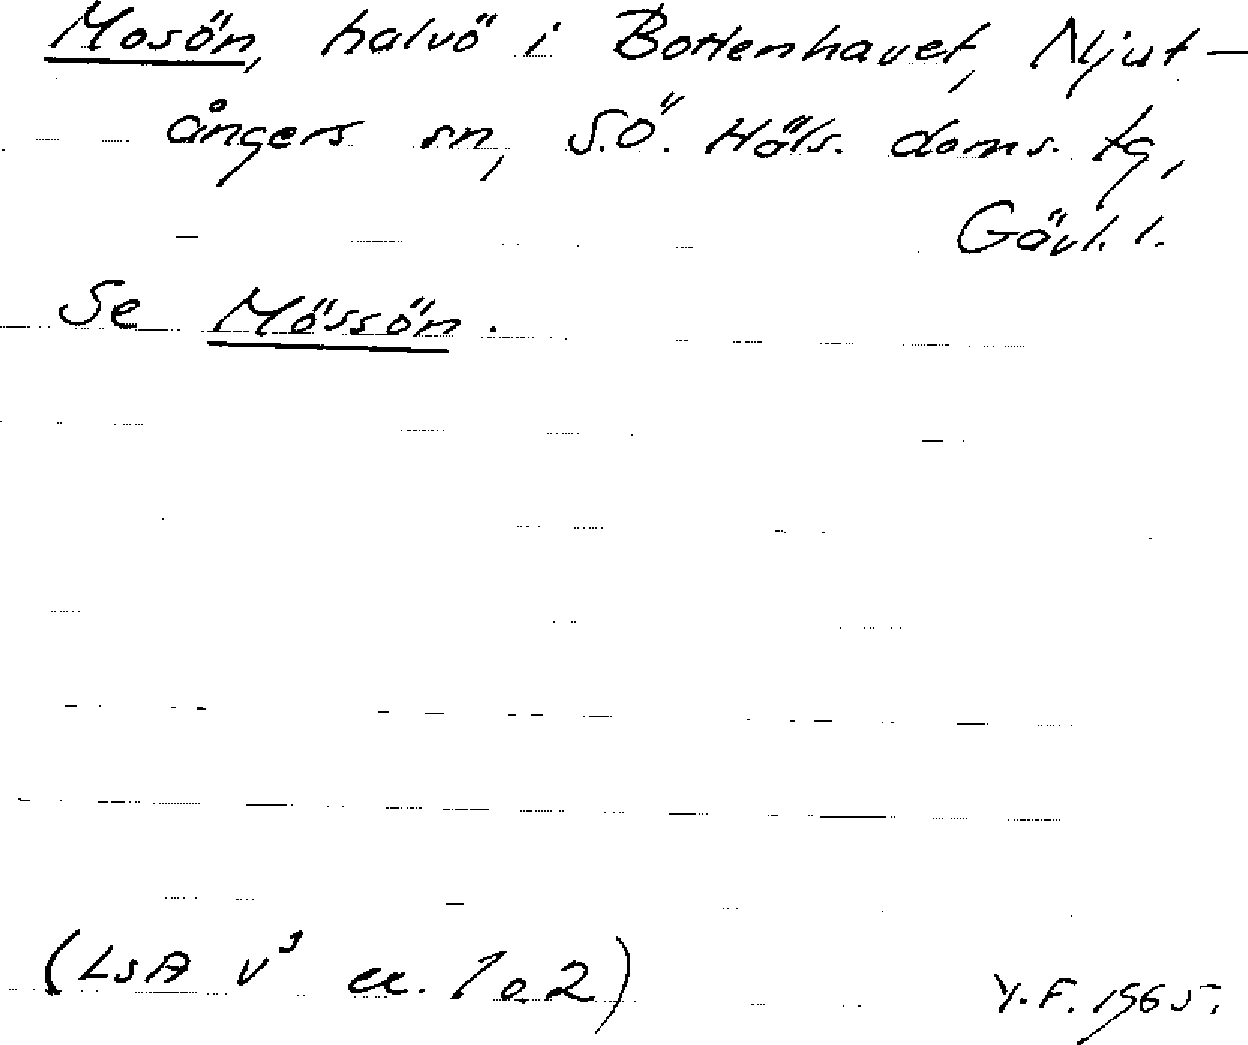 Mosön, halvö i Bottenhavet, Njut-
ångers sn, S.Ö. Häls. doms. tg,
Gävl. l.
Se Mössön.
(LsA v³ ec. 1 o. 2)
Y.F. 1965.